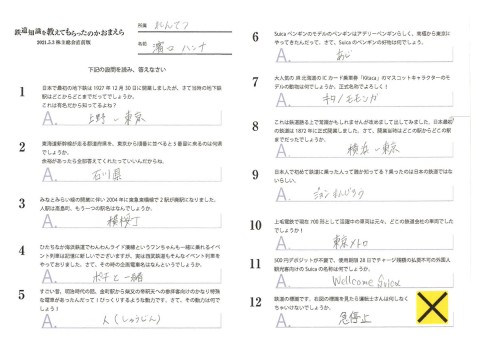 鉄道知識を教えてもらったのかおまえら
2021.5.3 株主総会直前版
所属
名前
濱口 ハンナ
下記の設問を読み、答えなさい
1
日本で最初の地下鉄は 1927 年 12 月 30 日に開業しましたが、さて当時の地下鉄
駅はどこからどこまでだったでしょうか。
これは有名だから知ってるよね？
A. 上野〜東京
2
東海道新幹線が
A. 石川県
3
みなとみらい線の開業に伴い 2004 年に東急東横線で 2 駅が廃駅になりました。
人駅は高島町、もう一つの駅名はなんでしょうか。
A. 横桜丁
4
ひたちなか海浜鉄道でわんわんライド湊線というワンちゃんも一緒に乗れるイベ
ント列車は記憶に新しいでございますが、実は西武鉄道もそんなイベント列車を
やっておりました。さて、その時の企画電車名はなんというでしょうか。
A. ポチと一緒
5
すごい昔、明治時代の話。金町駅から柴又の帝釈天への参拝客向けのかなり特殊
な電車があったんだって！びっくりするような動力です。さて、その動力は何でし
ょう！
A. 人（しゅうじん）
6
Suica ペンギンのモデルのペンギンはアデリーペンギンらしく、南極から東京に
やってきたんだって。さて、Suica のペンギンの好物は何でしょう。
A. あじ
7
大人気の JR 北海道の IC カード乗車券「Kitaca」のマスコットキャラクターのモ
デルの動物は何でしょうか、正式名称でよろしく！
A. キタノモモンガ
8
これは鉄道語る上で常識かもしれませんが攻めまして出してみました。日本最初
の鉄道は 1872 年に正式開業しました。さて、開業当時はどこの駅からどこの駅
までだったでしょうか。
A. 横浜〜東京
9
日本人で初めて鉄道に乗った人って誰か知ってる？乗ったのは日本の鉄道ではな
いらしい。
A. ジョンまんじろう
10
上毛電鉄で現在 700 形として活躍中の車両は元々、どこの鉄道会社の車両でした
でしょうか！
A. 東京メトロ
11
500 円デポジットが不要で、使用期限 28 日でチャージ残額の払戻不可の外国人
観光客向けの Suica の名称は何でしょうか。
A. Wellcome Suica
12
鉄道の標識です。右図の標識を見たら運転士さんは何しなく
ちゃいけないでしょうか。
A. 急停止